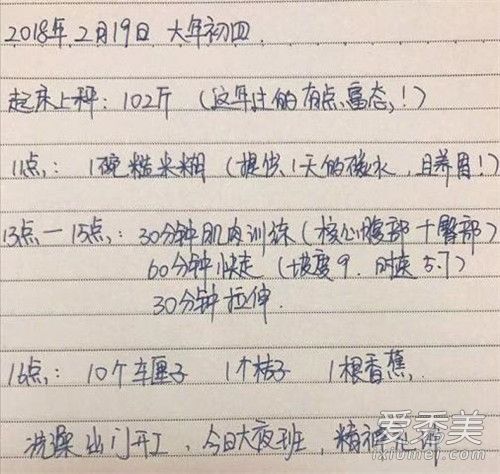 2018年2月19日 大年初四.
起床上秤: 102斤 (这年过的有点富态,!)
11点: 1碗糙米糊 (提供1天的碳水, 且养胃!)
13点一15点: 30分钟肌肉训练 (核心腹部+臀部)
60分钟快走 (坡度9. 时速5.7)
30分钟拉伸.
16点: 10个车厘子 1个桔子 1根香蕉,
洗澡出门开工, 今日大夜班, 精神
爱秀美
ixiumei.com